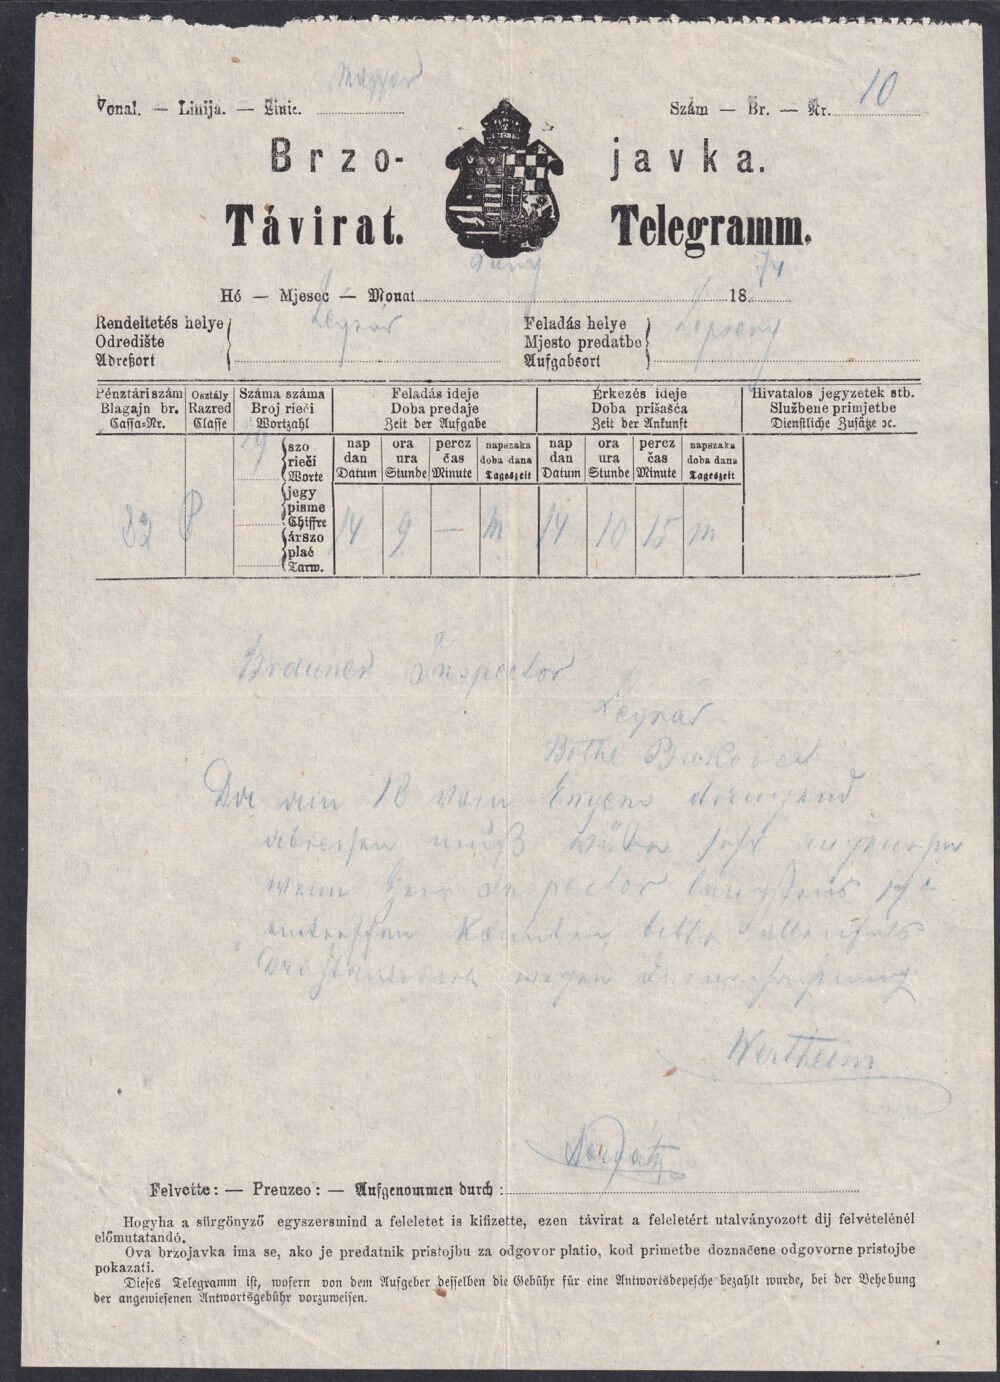 Magyar
Vonal. — Linija. — Linie.
Szám — Br. — Nr. 10
Brzo-javka.
Távirat. Telegramm.
Hó — Mjesec — Monat 18 74
Rendeltetés helye
Odredište
Adreßort
Légrád
Feladás helye
Mjesto predatbe
Aufgabsort
Lepseny
Pénztári szám
Blagajn br.
Cassa-Nr.
Osztály
Razred
Classe
Száma száma
Broj rieči
Wortzahl
Feladás ideje
Doba predaje
Zeit der Aufgabe
Érkezés ideje
Doba prišašća
Zeit der Ankunft
Hivatalos jegyzetek stb.
Službene primjetbe
Dienstliche Zusätze ꝛc.
29
szo
rieči
Worte
jegy
pisme
Chiffre
árszo
plać
Tarw.
nap
dan
Datum
ora
ura
Stunde
percz
čas
Minute
napszaka
doba dana
Tageszeit
nap
dan
Datum
ora
ura
Stunde
percz
čas
Minute
napszaka
doba dana
Tageszeit
82 P 14 9 — m 14 10 15 m
Brauner Inspector
Légrád
Bothe Bukovec
Da am 18 vom dringend
abreisen muß wäre sehr angenehm
wenn Herr Inspector längstens
eintreffen könnten bitte allenfals
wegen
Wertheim
Felvette: — Preuzeo: — Aufgenommen durch:
Hogyha a sürgönyző egyszersmind a feleletet is kifizette, ezen távirat a feleletért utalványozott dij felvételénél
előmutatandó.
Ova brzojavka ima se, ako je predatnik pristojbu za odgovor platio, kod primetbe doznačene odgovorne pristojbe
pokazati.
Dieses Telegramm ist, wofern von dem Aufgeber desselben die Gebühr für eine Antwortsdepesche bezahlt wurde, bei der Behebung
der angewiesenen Antwortsgebühr vorzuweisen.